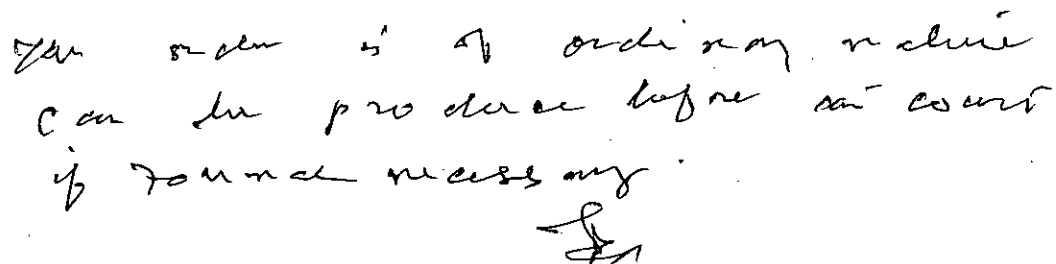 order is of ordinary nature
can be produce before court
if found necessary.